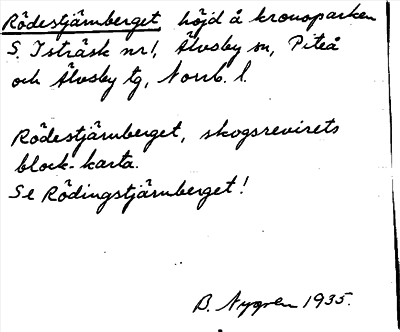 Rödestjärnberget, höjd å kronoparken
S. Isträsk nr 1, Älvsby sn, Piteå
och Älvsby tg, Norrb. l.
Rödestjärnberget, skogsrevirets
block-karta.
Se Rödingstjärnberget!
B. Nygren 1935.